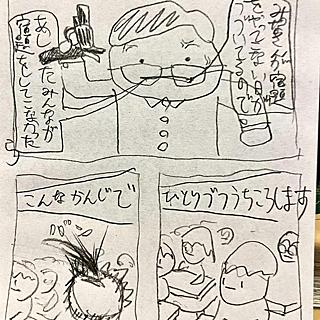 みなさんが宿題
をやってこない日が
つづいているので
あしたみんなが
宿題をしてこなかった
ら
ひとりづつうちころします
こんなかんじで